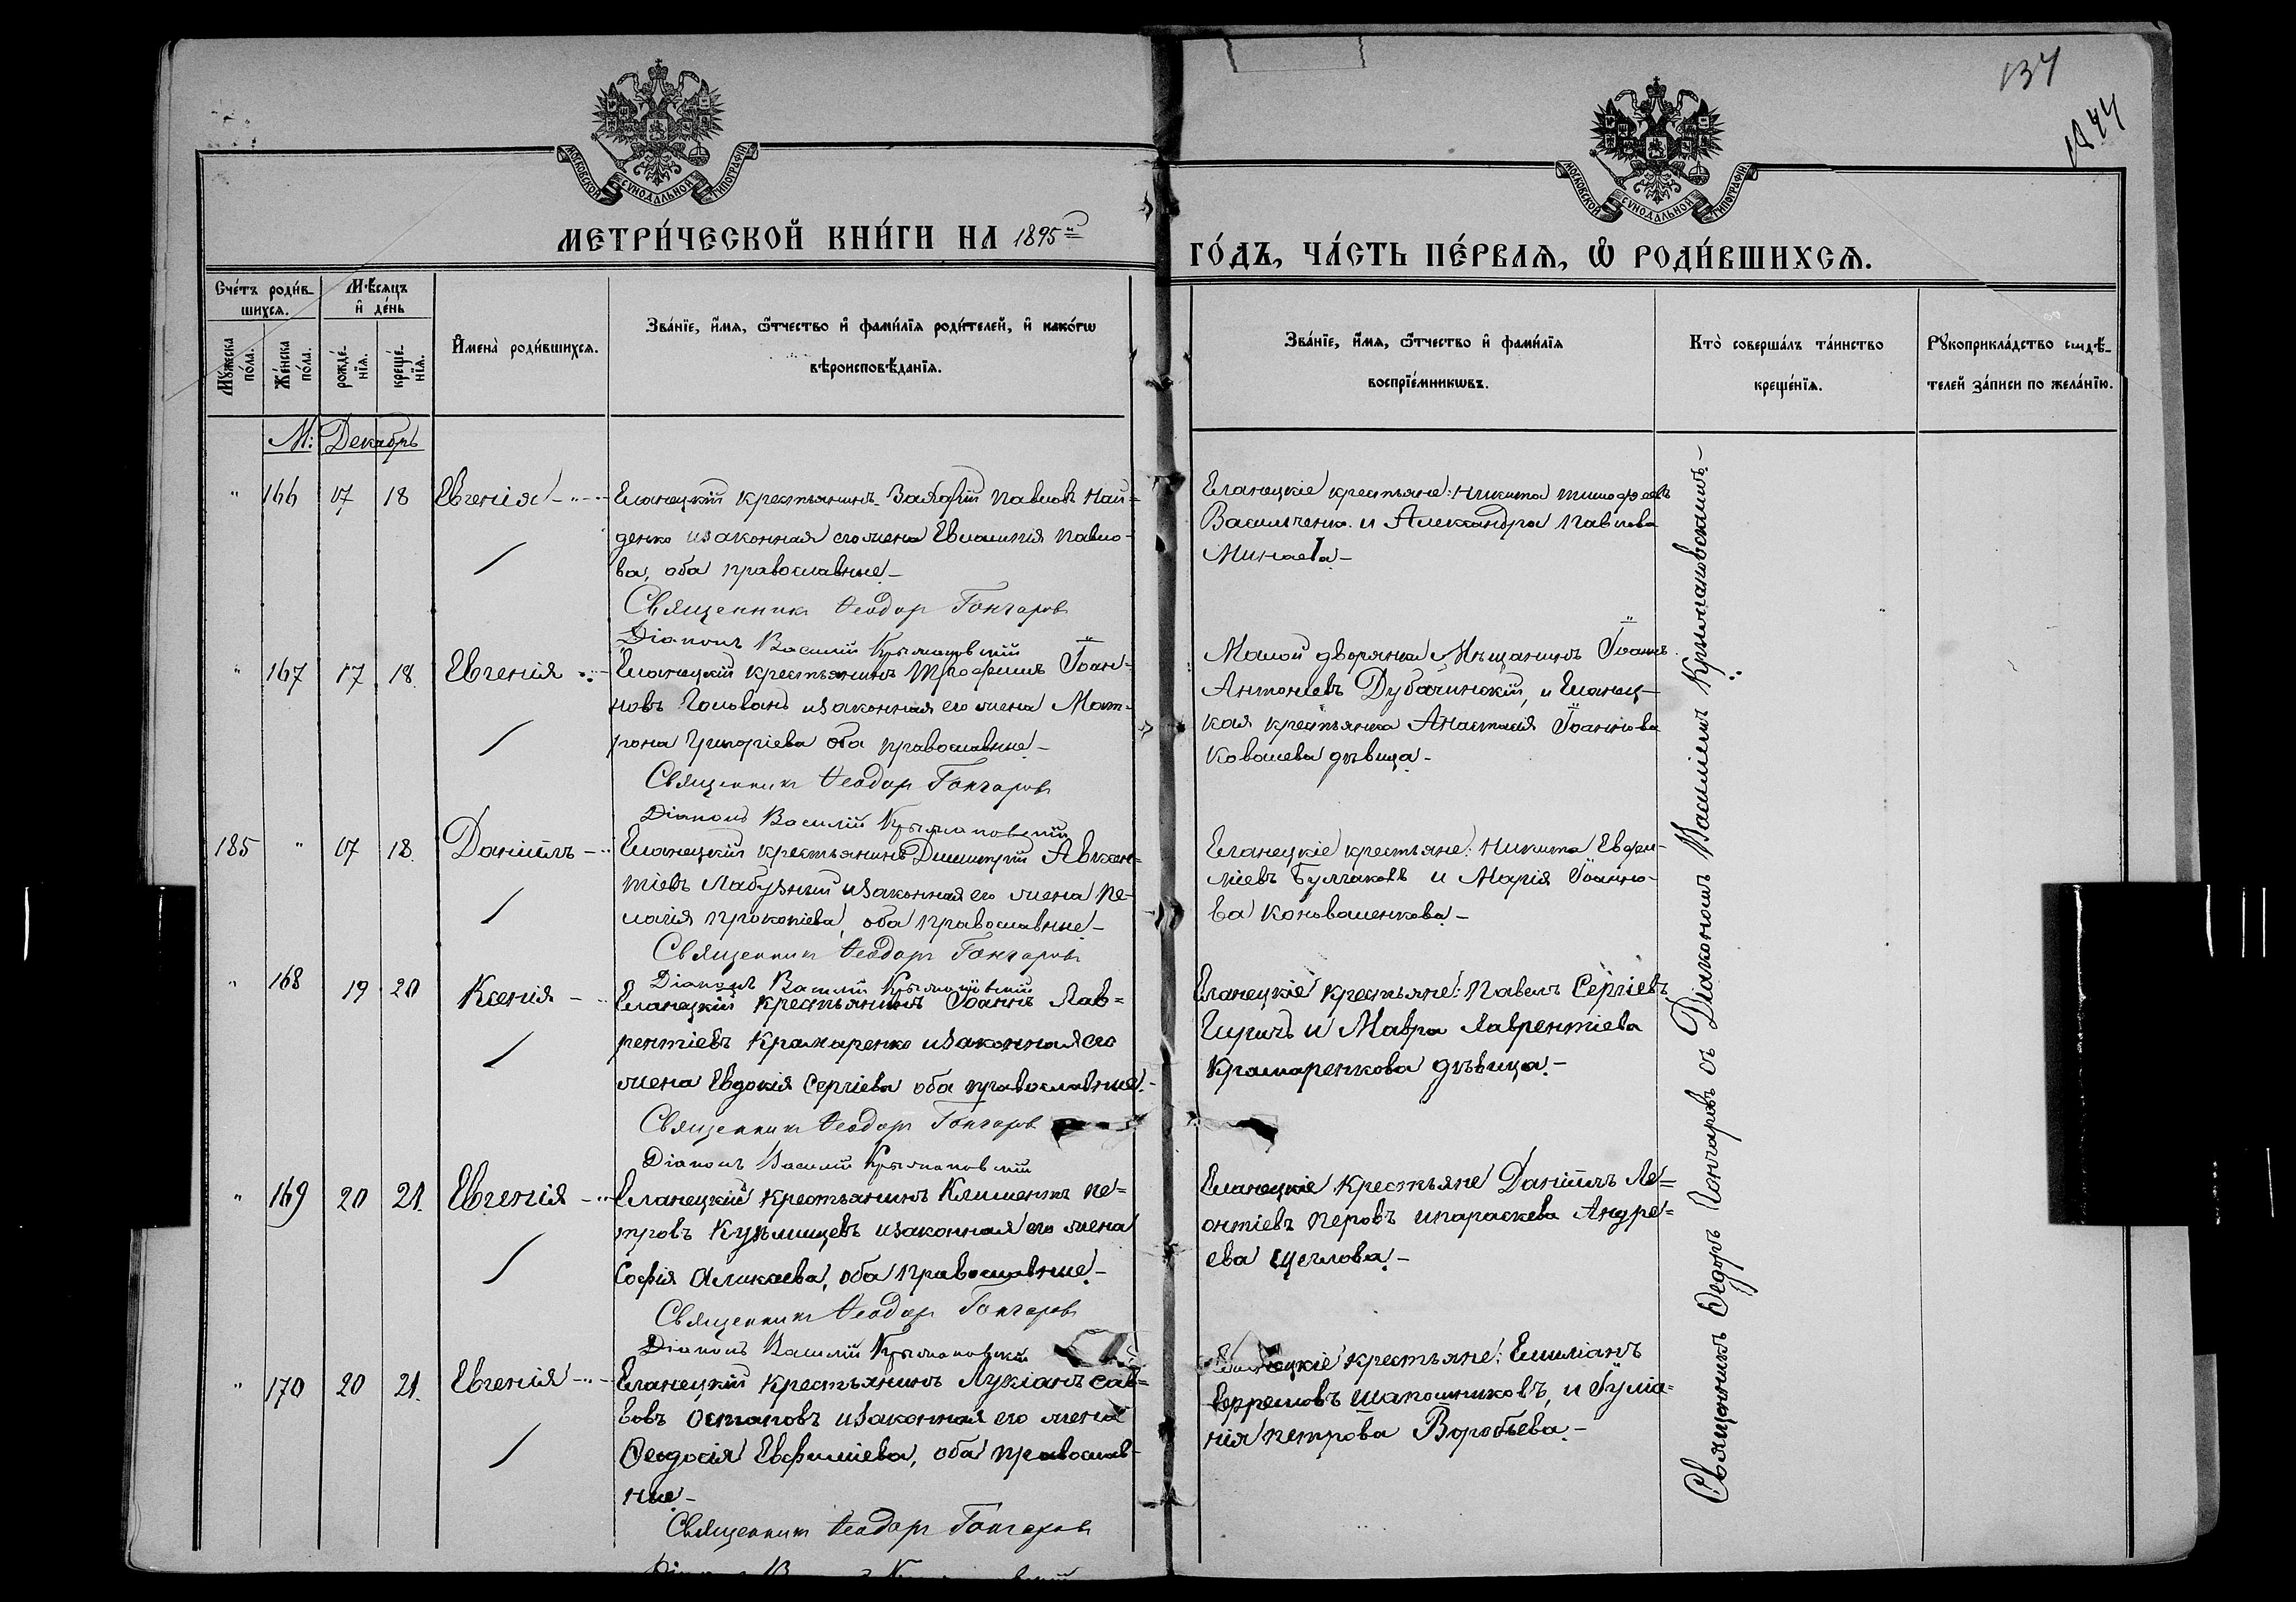 134
1844
МОСКОВСКОЙ СѴНОДАЛЬНОЙ ТИПОГРАФІИ
МОСКОВСКОЙ СѴНОДАЛЬНОЙ ТИПОГРАФІИ
МЕТРИ́ЧЕСКОЙ КНИ́ГИ НА 1895й
ГО́ДЪ, ЧА́СТЬ ПЕ́РВАѦ, Ѡ РОДИ́ВШИХСѦ.
Сче́тъ роди́в-
шихсѧ.
Мѣ́сяцъ
и҆ де́нь
Мꙋ́жеска
по́ла.
Же́нска
по́ла.
рожде́-
нїѧ.
креще́-
нїѧ.
И҆мена̀ роди́вшихсѧ.
Зва́нїе, и҆́мѧ, ѻ҆́тчество и҆ фами́лїѧ роди́телей, и҆ како́гѡ
вѣроисповѣ́данїѧ.
Зва́нїе, и҆́мѧ, ѻ҆́тчество и҆ фами́лїѧ
воспрїе́мникѡвъ.
Кто̀ соверша́лъ та́инство
креще́нїѧ.
Рꙋкоприкла́дство свидѣ́-
телей за́писи по жела́нїю.
М: Декабрь
" 166 17 18 Евгенія
Еланецкій крестьянинъ Павловъ Най=
денко и законная его жена Павло-
ва, оба православные.–
Священникъ Ѳеодоръ Гончаровъ
Діаконъ Василій Крыжановскій
Еланецкіе крестьяне: Никита Тимофѣевъ
Васильченко и Александра Павлова
Минаева.–
" 167 17 18. Евгенія
Еланецкій крестьянинъ Трофимъ Іоан-
новъ Голованъ и законная его жена Мат-
рона Григоріева оба православные.–
Священникъ Ѳеодоръ Гончаровъ
Діаконъ Василій Крыжановскій
Малой дворянки Мѣщанинъ Іоаннъ
Антоніевъ и Еланец-
кая крестьянка Анастасія Іоаннова
Ковалева дѣвица.–
185 " 17 18. Даніилъ
Еланецкій крестьянинъ Димитрій Авксен=
тіевъ Лабузный и законная его жена Пе-
лагія Прокопіева, оба православные.–
Священникъ Ѳеодоръ Гончаровъ
Діаконъ Василій Крыжановскій
Еланецкіе крестьяне: Никита Евфи-
міевъ Булгаковъ и Марія Іоанно-
ва Коноваленкова.–
" 168 19 20 Ксенія
Еланецкій крестьянинъ Іоаннъ Лав=
рентіевъ Крамаренко и законная его
жена Евдокія Сергіева оба православные.–
Священникъ Ѳеодоръ Гончаровъ
Діаконъ Василій Крыжановскій
Еланецкіе крестьяне: Павелъ Сергіевъ
и Мавра Лаврентіева
Крамаренкова дѣвица.–
" 169 20 21. Евгенія
Еланецкій крестьянинъ Климентъ Пе=
тровъ Кузьмицевъ и законная его жена
Софія оба православные.–
Священникъ Ѳеодоръ Гончаровъ
Діаконъ Василій Крыжановскій
Еланецкіе крестьяне Даніилъ Ле=
онтіевъ Перовъ и Параскева Андре=
ева Щеглова.–
" 170 20 21. Евгенія
Еланецкій крестьянинъ Лукіанъ Сав=
вовъ Остаповъ и законная его жена
Ѳеодосія Евфиміева, оба православ-
ные.–
Священникъ Ѳеодоръ Гончаровъ
Еланецкіе крестьяне: Емиліанъ
Ефремовъ Шапошниковъ, и Іуліа=
нія Петрова Воробьева.–
Священникъ Ѳедоръ Гончаровъ съ Діакономъ Василіемъ Крыжановскимъ.–